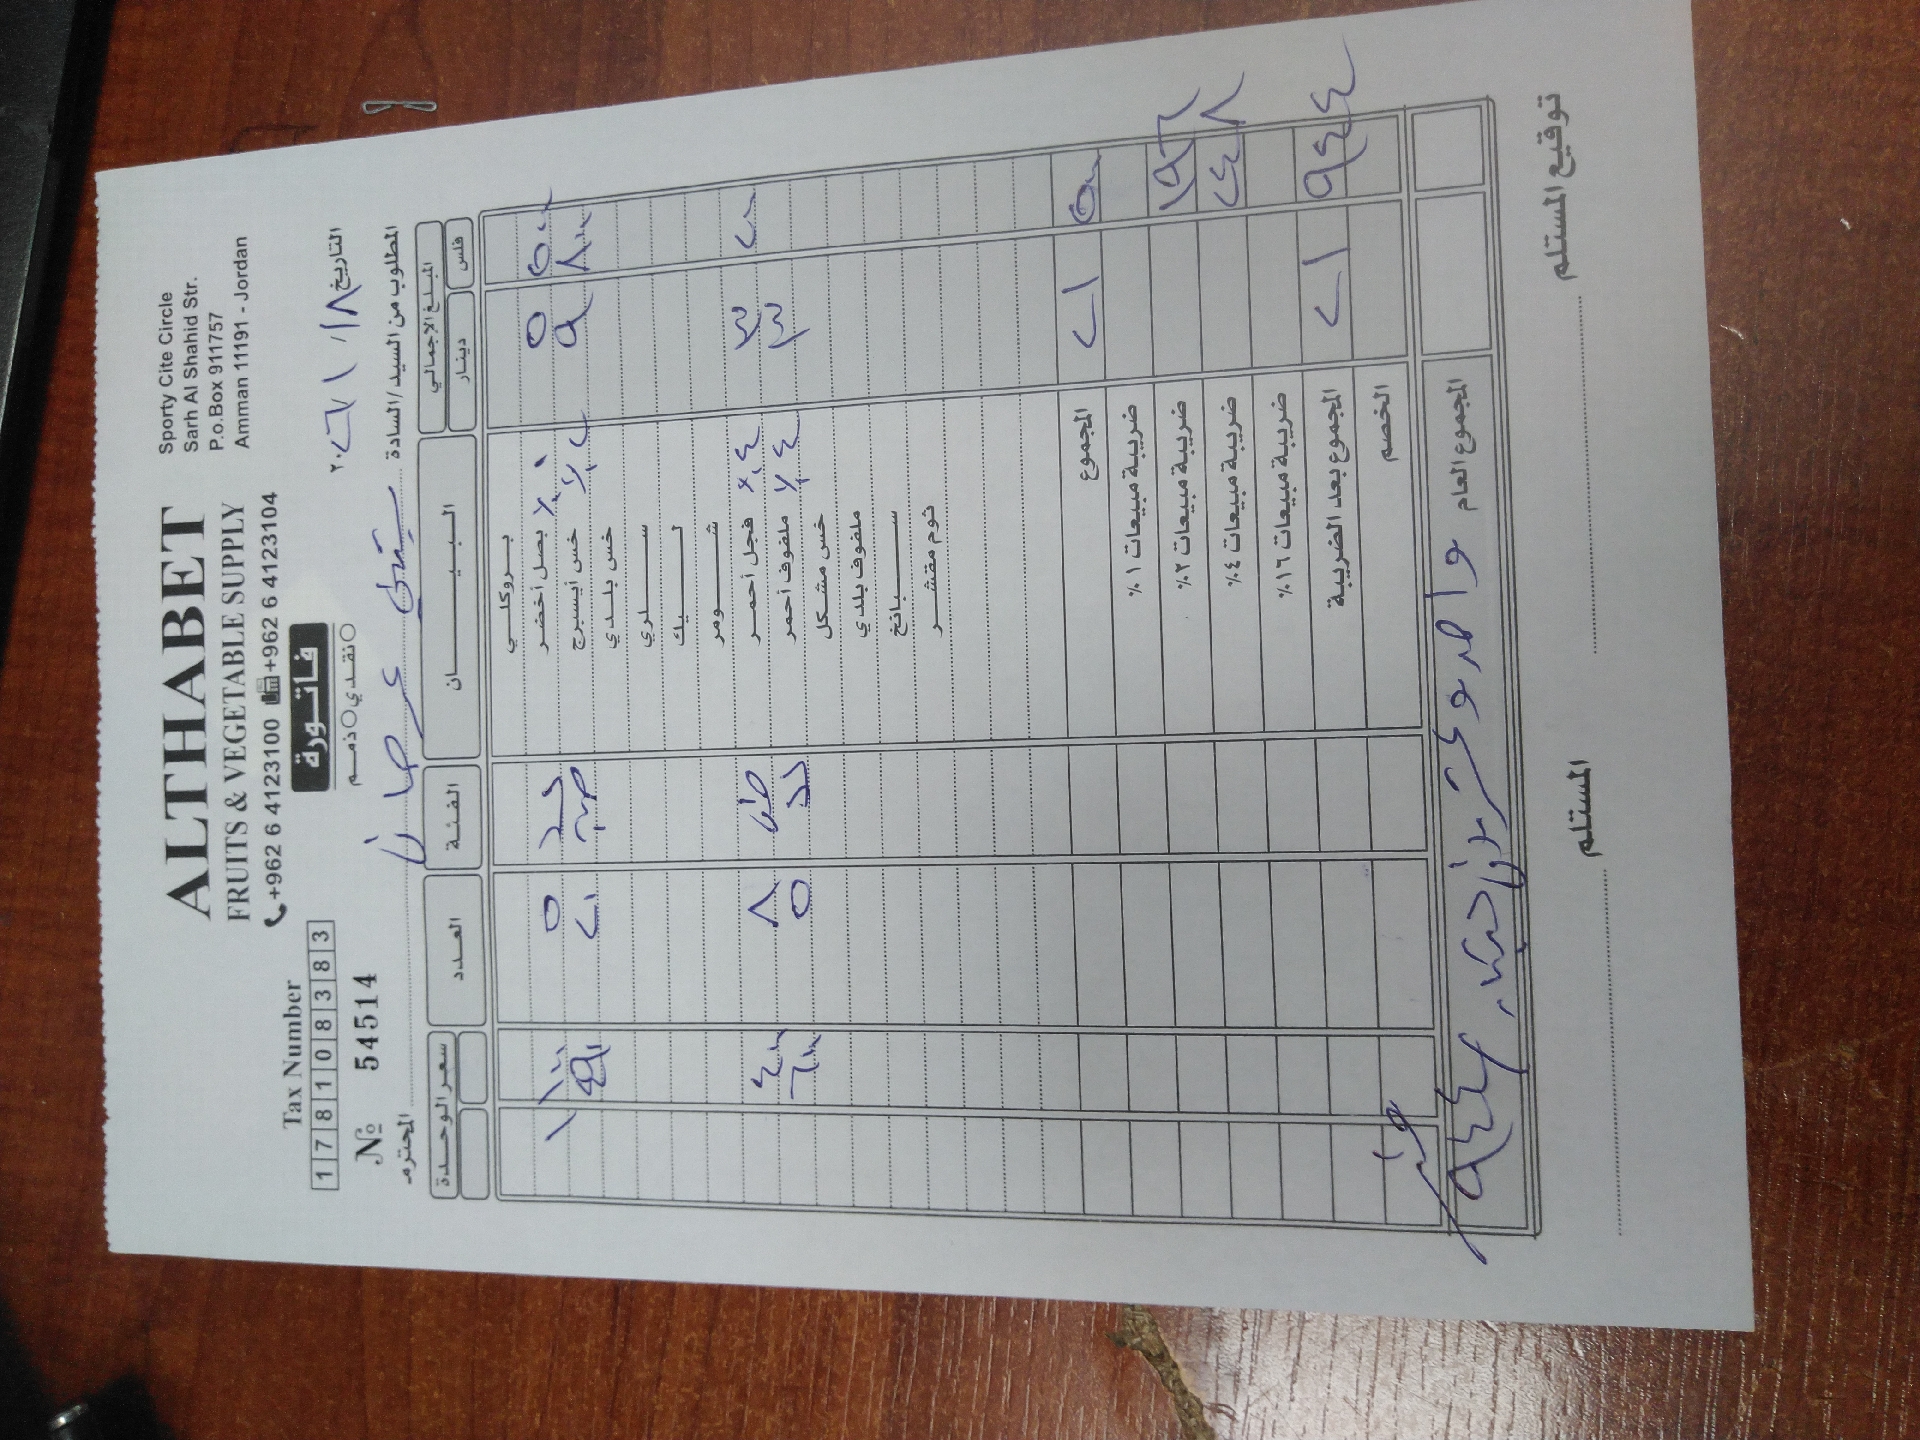 ALTHABET
FRUITS & VEGETABLE SUPPLY
+962 6 4123100 +962 6 4123104
Sporty Cite Circle
Sarh Al Shahid Str.
P.o.Box 911757
Amman 11191 - Jordan
Tax Number
1 7 8 1 0 8 3 8 3
فاتورة
نقدي ذمم
№ 54514
التاريخ ١٨ / ١ / ٢٠٢٦
المطلوب من السيد / السادة
المحترم
المبلغ الإجمالي البيان الفئة العدد سعر الوحدة
فلس دينار
بروكلي
٥٠٠ ٥ بصل أخضر ٥ ١١٠٠
٨٠٠ ٩ خس أيسبرج
خس بلدي
سلري
ليك
شومر
٢٠٠ ٣ فجل أحمر ٤٪ ٨ ٤٠٠
٣ ملفوف أحمر ٤٪ ٥ ٦٠٠
خس مشكل
ملفوف بلدي
سبانخ
ثوم مقشر
٥٠٠ ٢١ المجموع
ضريبة مبيعات ١٪
١٩٦ ضريبة مبيعات ٢٪
٢٤٨ ضريبة مبيعات ٤٪
ضريبة مبيعات ١٦٪
٩٤٤ ٢١ المجموع بعد الضريبة
الخصم
المجموع العام واحد وعشرون دينار ٩٤٤
المستلم توقيع المستلم